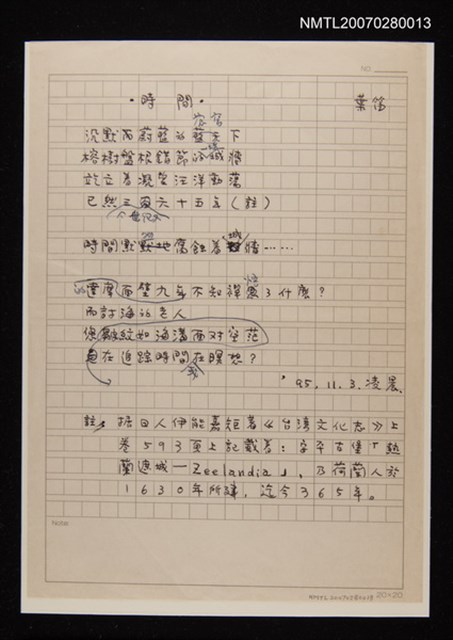 NMTL20070280013
NO.
·時間·
葉笛
沉默而蔚藍的蒼穹下
榕樹盤根錯節的城牆
竝立着凝望汪洋動蕩
已然三百六十五年(註)
時間點點地腐蝕着城牆……
達摩面壁九年不知禪悟了什麼?
而討海的老人
皺紋如海溝面對空茫
在追踪時間在瞑想?
'95.11.3.凌晨
註:據日人伊能嘉矩著《台灣文化志》上
卷593頁上記載着:安平古堡「熱
蘭遮城—Zeelandia」,乃荷蘭人於
1630年所建,迄今365年。
Note
20×20